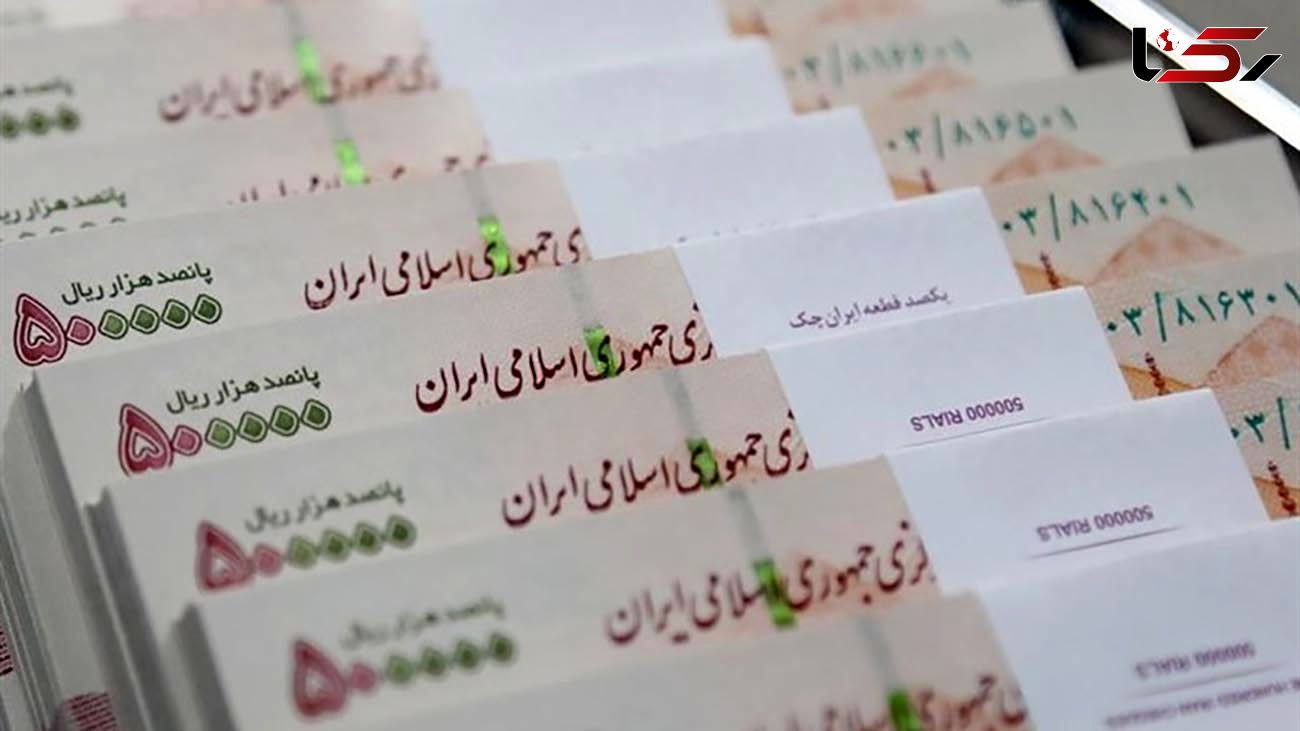 رکنا
۰۳/۸۱۶۶۰۱
جمهوری اسلامی ایران
۰۳/۸۱۶۵۰۱
پانصد هزار ریال
۰۳/۸۱۶۴۰۱
جمهوری اسلامی ایران
پانصد هزار ریال
۵۰۰۰۰۰
یکصد قطعه ایران چک
۰۳/۸۱۶۳۰۱
جمهوری اسلامی ایران
پانصد هزار ریال
۵۰۰۰۰۰
500000 RIALS
۰۳/
جمهوری اسلامی ایران
پانصد هزار ریال
۵۰۰۰۰۰
500000 RIALS
جمهوری اسلامی ایران
پانصد هزار ریال
۵۰۰۰۰۰
500000 RIALS
جمهوری اسلامی